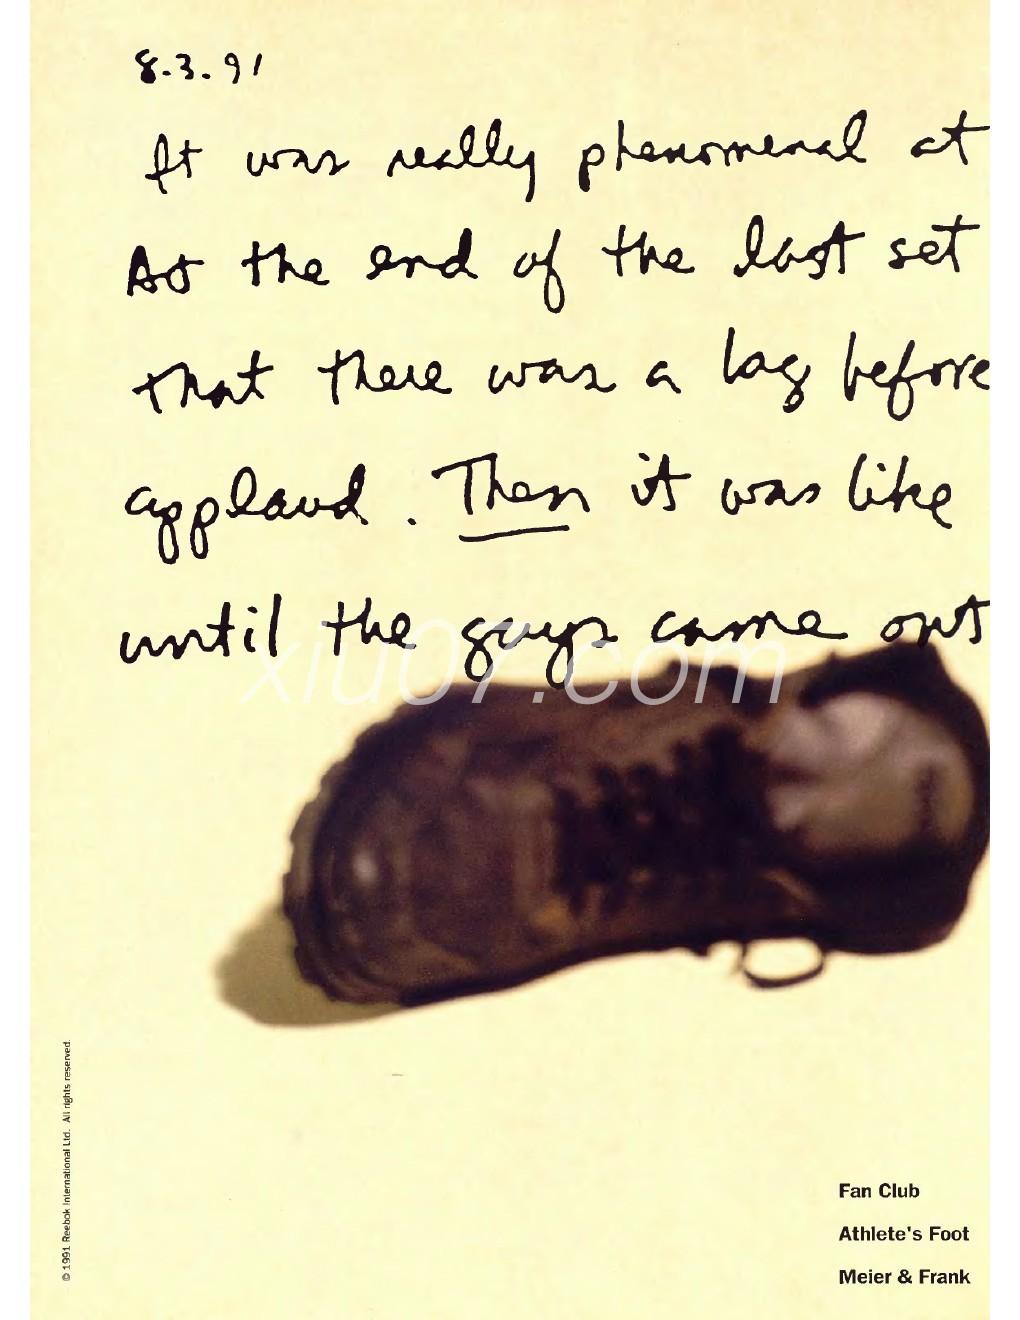 8.3.91
It was really phenomenal at
As the end of the last set
that there was a lag before
applaud. Then it was like
until the guys came out
xiu07.com
© 1991 Reebok International Ltd. All rights reserved.
Fan Club
Athlete's Foot
Meier & Frank